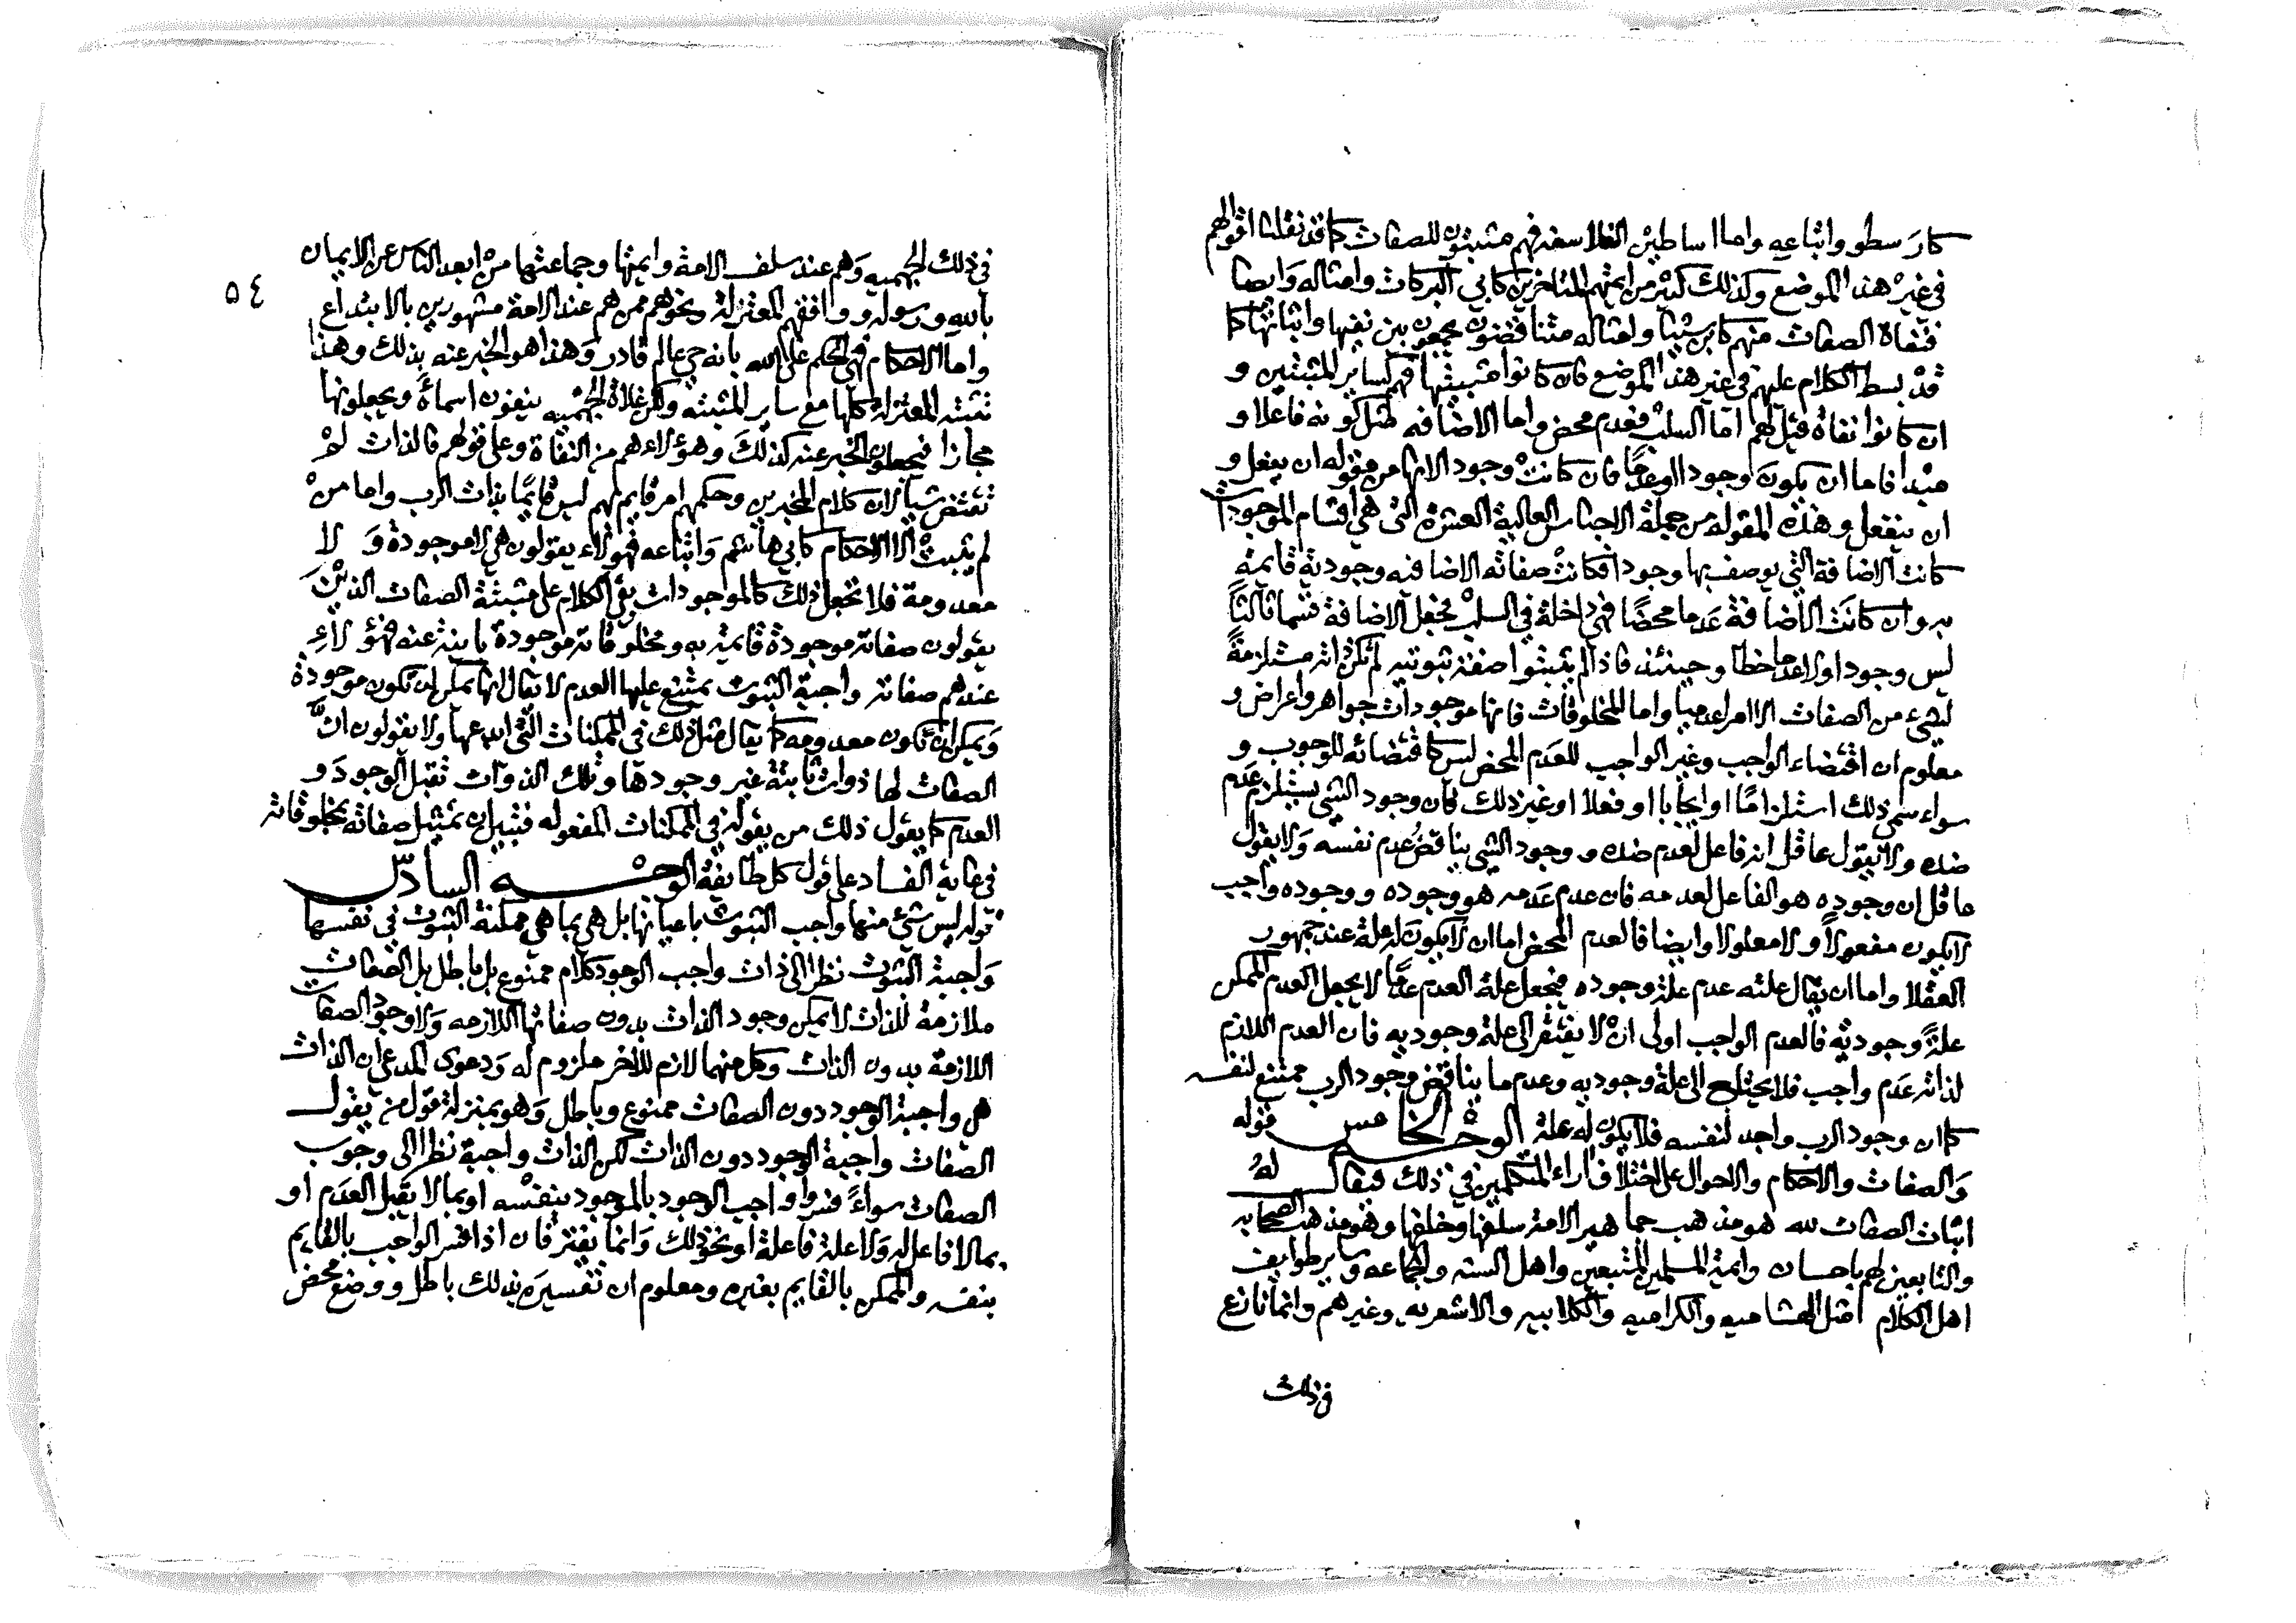 كارسطو واتباعه واما اساطين الفلاسفه فهم مثبتون للصفات كما قد نقلنا اقوالهم
في غير هذا الموضع وكذلك كثير من ايمتهم المتاخرين كابي البركات وامثاله وايضا
فنفاة الصفات منهم كابن سينا وامثاله متناقضون يجمعون بين نفيها واثباتها كما
قد بسط الكلام عليهم في غير هذا الموضع فان كانوا مثبتيها فهم كساير المثبتين و
ان كانوا نفاة قيل لهم اما السلب فعدم محض واما الاضافه مثل كونه فاعلا و
مبدا فاما ان يكون وجودا او عدما فان كانت وجودا لانها من مقوله ان يفعل و
ان ينفعل وهذه المقولة من جملة الاجناس العالية العشرة التي هي اقسام الموجودات
كانت الاضافة التي يوصف بها وجودا فكانت صفاته الاضافيه وجودية قايمة
به وان كانت الاضافة عدما محضا فهي داخلة في السلب فجعل الاضافة قسما ثالثا
ليس وجودا ولا عدما خطا وحينئذ فاذا لم يثبتوا صفة ثبوتيه لم تكن ذاته مستلزمة
لشيء من الصفات الا امرا عدميا واما المخلوقات فانها موجودات جواهر واعراض و
معلوم ان اقتضاء الواجب وغير الواجب للعدم المحض ليس كاقتضائه للوجوب و
سواء سمى ذلك استلزاما او ايجابا او فعلا او غير ذلك فان وجود الشي يستلزم عدم
ضده ولا يقول عاقل انه فاعل لعدم ضده ووجود الشي يناقض عدم نفسه ولا يقول
عاقل ان وجوده هو الفاعل لعدمه فان عدم عدمه هو وجوده ووجوده واجب
لا يكون مفعولا ولا معلولا وايضا فالعدم المحض اما ان لا يكون له علة عند جمهور
العقلا واما ان يقال علته عدم علة وجوده فيجعل علة العدم عدما لا يجعل للعدم الممكن
علة وجودية فالعدم الواجب اولى ان لا يفتقر الى علة وجوديه فان العدم اللازم
لذاته عدم واجب فلا يحتاج الى علة وجوديه وعدم ما يناقض وجود الرب ممتنع لنفسه
كما ان وجود الرب واجد لنفسه فلا يكون له علة الوجه الخامس قوله
والصفات والاحكام والاحوال على اختلاف اراء المتكلمين في ذلك فيقال له
اثبات الصفات لله هو مذهب جماهير الامة سلفها وخلفها وهو مذهب الصحابه
والتابعين لهم باحسان وايمة المسلمين المتبعين واهل السنه والجماعه وساير طوايف
اهل الكلام مثل الهشاميه والكراميه والكلابيه والاشعريه وغيرهم وانما نازع
في ذلك
٥٤
في ذلك الجهميه وهم عند سلف الامة وايمتها وجماعتها من ابعد الناس عن الايمان
بالله ورسوله ووافقهم المعتزلة ونحوهم ممن هم عند الامة مشهورين بالابتداع
واما الاحكام فهي الحكم على الله بانه حي عالم قادر وهذا هو الخبر عنه بذلك وهذا
تثبته المعتزلة كلها مع ساير المثبته ولكن غلاة الجهميه ينفون اسماءه ويجعلونها
مجازا فيجعلون الخبر عنه كذلك وهؤلاء هم من النفاة وعلى قولهم فالذات لم
تقتض شيا لان كلام المخبرين وحكمهم امر قايم بهم ليس قايما بذات الرب واما من
لم يثبت الا الاحكام كابي هاشم واتباعه فهولاء يقولون هي لا موجودة ولا
معدومة فلا نجعل ذلك كالموجودات بقي الكلام على مثبتة الصفات الذين
يقولون صفاته موجودة قايمة به ومخلوقاته موجودة باينة عنه فهؤلاء
عندهم صفاته واجبة الثبوت يمتنع عليها العدم لا يقال انها يمكن ان تكون موجودة
ويمكن ان تكون معدومه كما يقال مثل ذلك في الممكنات التي ابدعها ولا يقولون ان
الصفات لها ذوات ثابتة غير وجودها وتلك الذوات تقبل الوجود و
العدم كما يقول ذلك من يقوله في الممكنات المفعوله فتبين ان تمثيل صفاته بمخلوقاته
في غاية الفساد على قول كل طايفة الوجه السادس
قوله ليس شئ منها واجب الثبوت باعيانها بل هي بما هي ممكنة الثبوت في نفسها
واجبة الثبوت نظرا الى ذات واجب الوجود كلام ممنوع بل باطل بل الصفات
ملازمة للذات لا يمكن وجود الذات بدون صفاتها اللازمه ولا وجود الصفات
اللازمة بدون الذات وكل منهما لازم للاخر ملزوم له ودعوى المدعي ان الذات
هي واجبة الوجود دون الصفات ممنوع وباطل وهو بمنزلة قول من يقول
الصفات واجبة الوجود دون الذات لكن الذات واجبة نظرا الى وجوب
الصفات سواء فسروا واجب الوجود بالموجود بنفسه او بما لا يقبل العدم او
بما لا فاعل له ولا علة فاعلة او نحو ذلك وانما يفترقان اذا فسر الواجب بالقايم
بنفسه والممكن بالقايم بغيره ومعلوم ان تفسيره بذلك باطل ووضع محض